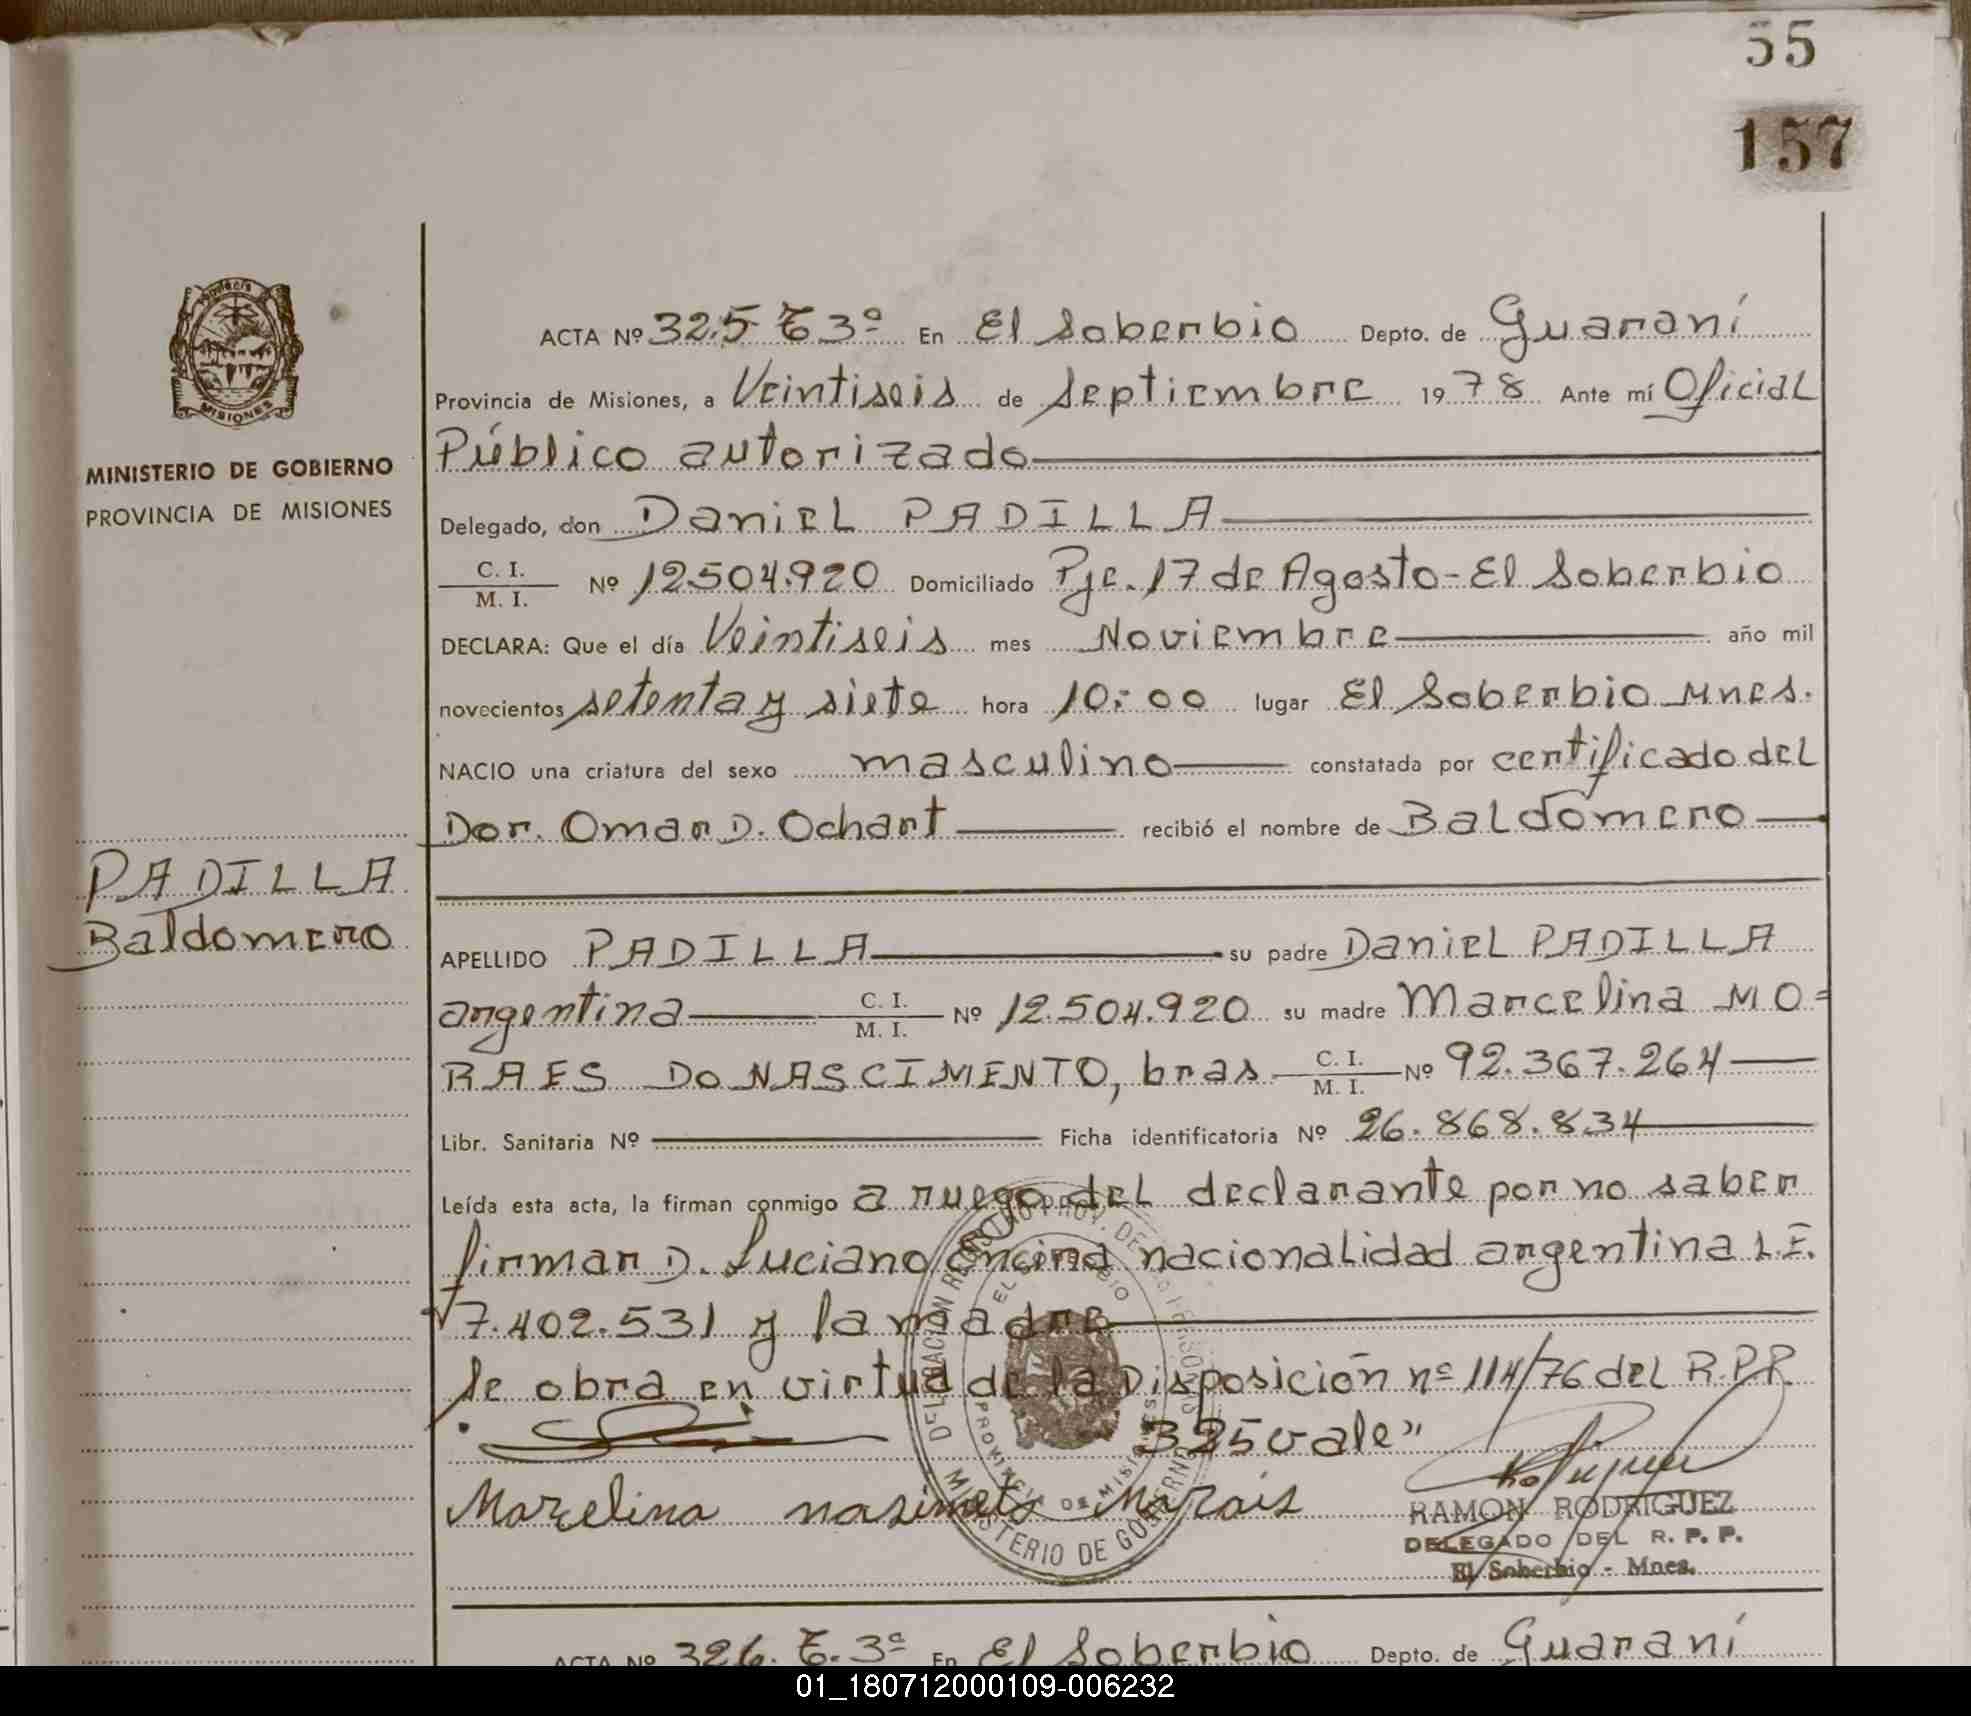 55
157
Provincia
MISIONES
MINISTERIO DE GOBIERNO
PROVINCIA DE MISIONES
PADILLA
Baldomero
ACTA Nº 325 T 3º En El Soberbio Depto. de Guaraní
Provincia de Misiones, a Veintiseis de Septiembre 1978 Ante mí Oficial
Público autorizado
Delegado, don Daniel PADILLA
C. I.
M. I. Nº 12.504.920 Domiciliado Pje. 17 de Agosto - El Soberbio
DECLARA: Que el día Veintiseis mes Noviembre año mil
novecientos setenta y siete hora 10:00 lugar El Soberbio Mnes.
NACIO una criatura del sexo masculino constatada por certificado del
Dor. Omar D. Ochart recibió el nombre de Baldomero
APELLIDO PADILLA su padre Daniel PADILLA
argentina C. I.
M. I. Nº 12.504.920 su madre Marcelina MO=
RAES DO NASCIMENTO, bras C. I.
M. I. Nº 92.367.264
Libr. Sanitaria Nº Ficha identificatoria Nº 26.868.834
Leída esta acta, la firman conmigo a ruego del declarante por no saber
firmar D. Luciano Encina nacionalidad argentina L.E.
7.402.531 y la madre
Se obra en virtud de la Disposición nº 114/76 del R.P.P.
325 vale"
Marcelina nasimeto Morais
RAMON RODRIGUEZ
DELEGADO DEL R. P. P.
El Soberbio - Mnes.
EL SOBERBIO
PROVINCIA DE MISIONES
MINISTERIO DE GOBIERNO
ACTA Nº 326 T. 3º En El Soberbio Depto. de Guaraní
01_180712000109-006232